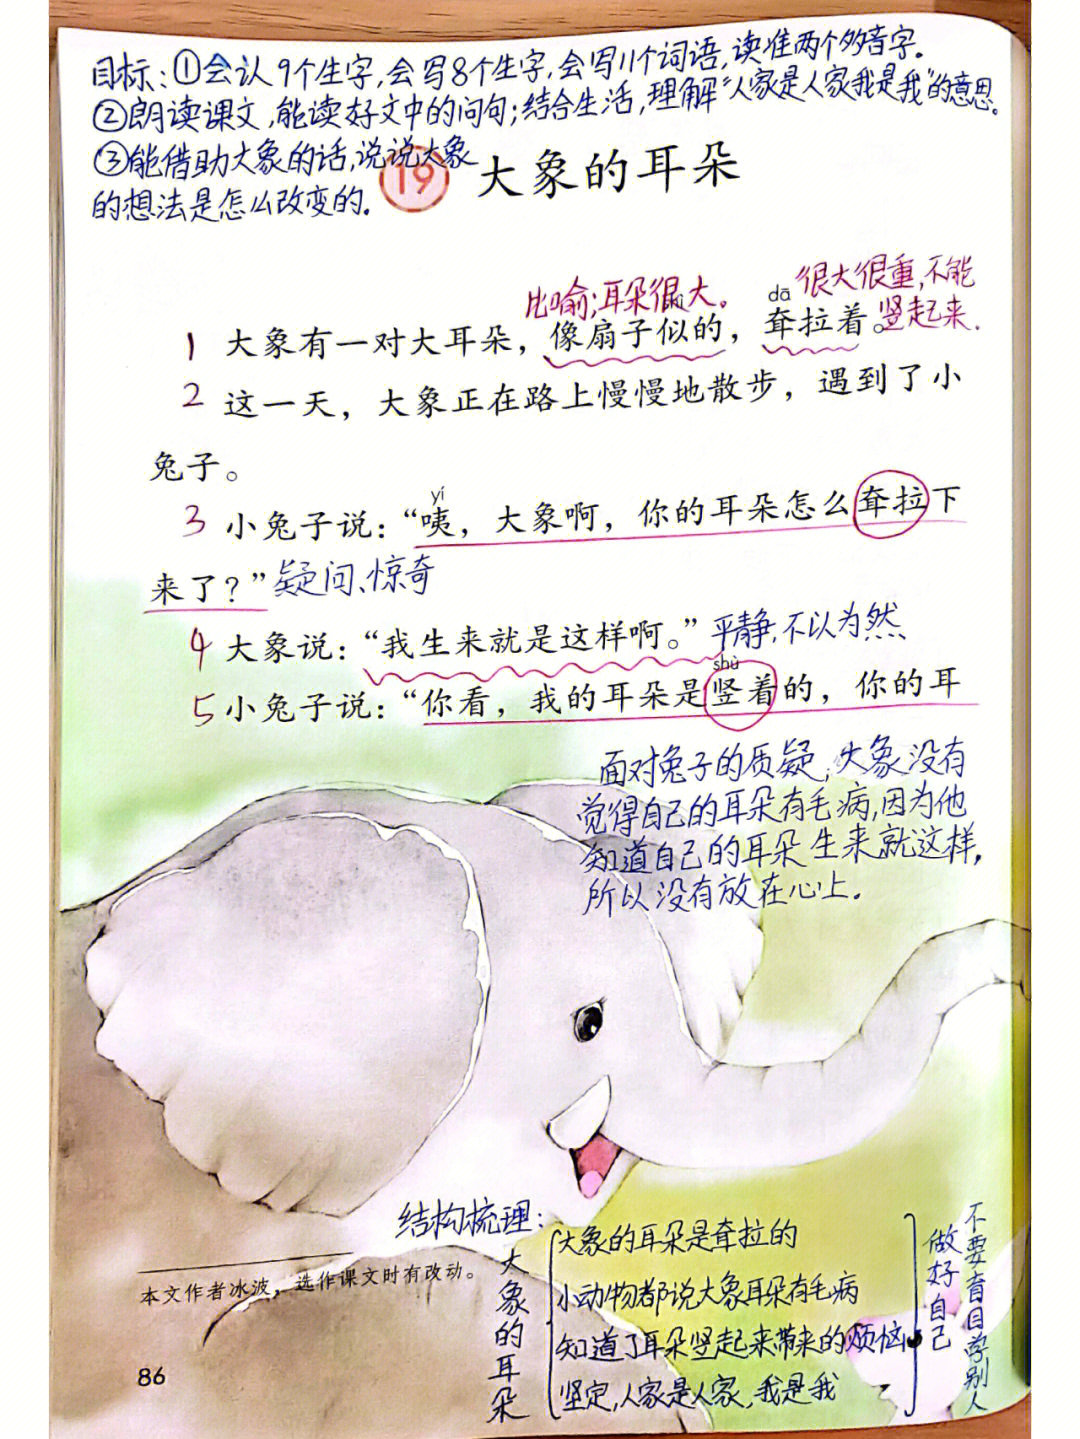 目标:①会认9个生字,会写8个生字,会写11个词语,读准两个多音字。
②朗读课文,能读好文中的问句;结合生活,理解“人家是人家我是我”的意思。
③能借助大象的话,说说大象
的想法是怎么改变的.
19 大象的耳朵
比喻;耳朵很大。
很大很重,不能
竖起来.
dā
1 大象有一对大耳朵，像扇子似的，耷拉着。
2 这一天，大象正在路上慢慢地散步，遇到了小
兔子。
yí
3 小兔子说：“咦，大象啊，你的耳朵怎么耷拉下
来了？” 疑问、惊奇
4 大象说：“我生来就是这样啊。” 平静,不以为然
shù
5 小兔子说：“你看，我的耳朵是竖着的，你的耳
面对兔子的质疑,大象没有
觉得自己的耳朵有毛病,因为他
知道自己的耳朵生来就这样,
所以没有放在心上.
结构梳理:
大象的耳朵
大象的耳朵是耷拉的
小动物都说大象耳朵有毛病
知道了耳朵竖起来带来的烦恼
坚定,人家是人家,我是我
做好自己
不要盲目学别人
本文作者冰波，选作课文时有改动。
86